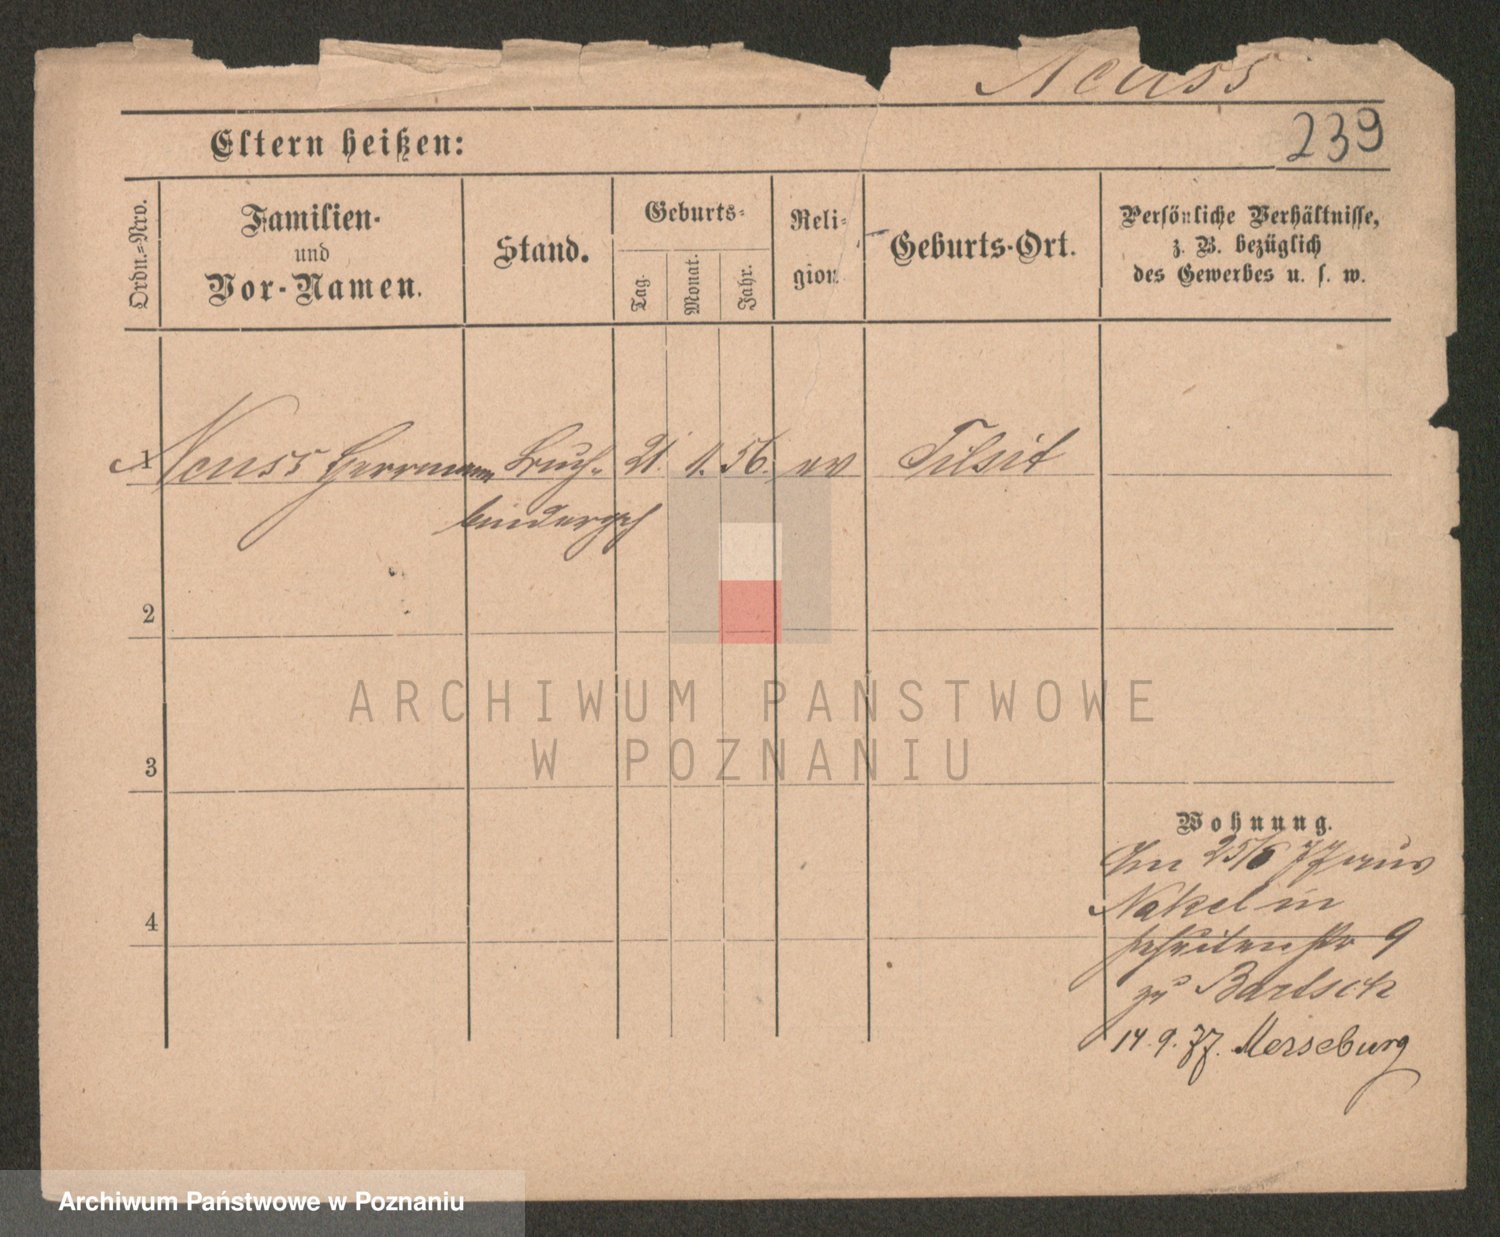 Neuss
239
Eltern heißen:
Ordn.=Nro.
Familien-
und
Vor-Namen.
Stand.
Geburts-
Tag.
Monat.
Jahr.
Reli-
gion.
Geburts-Ort.
Persönliche Verhältnisse,
z. B. bezüglich
des Gewerbes u. s. w.
1 Neuss Herrmann Buch- 21. 1. 56. ev Tilsit
bindergeh
2
3
4
Wohnung.
Am 25/6 77 aus
Nakel in
Jesuitenstr 9
zu Bartsch
14. 9. 77. Merseburg
ARCHIWUM PAŃSTWOWE
W POZNANIU
Archiwum Państwowe w Poznaniu